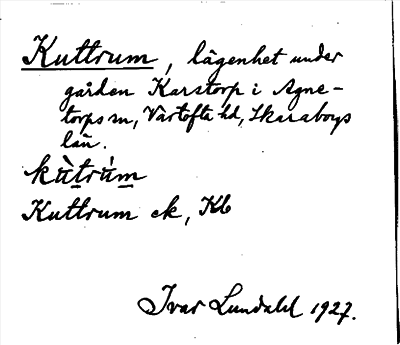 Kuttrum, lägenhet under
gården Karstorp i Agne-
torps sn, Vartofta hd, Skaraborgs
län.
kùtrúm
Kuttrum ek, Kb
Ivar Lundahl 1927.